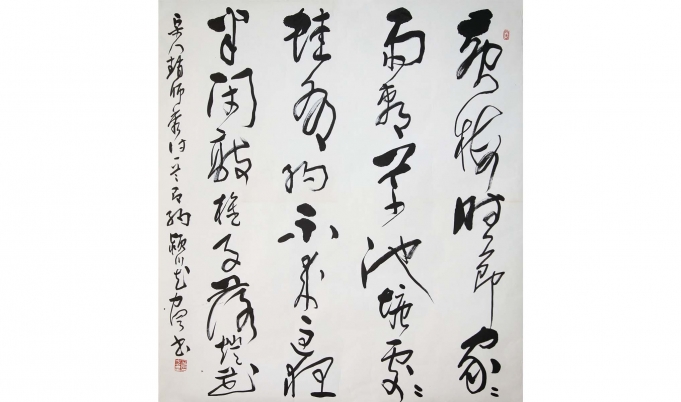 黄梅时节家〻
雨青草池塘处〻
蛙有约不来过夜
半闲敲棋子落灯花
宋人赵师秀诗一首有约颖川书